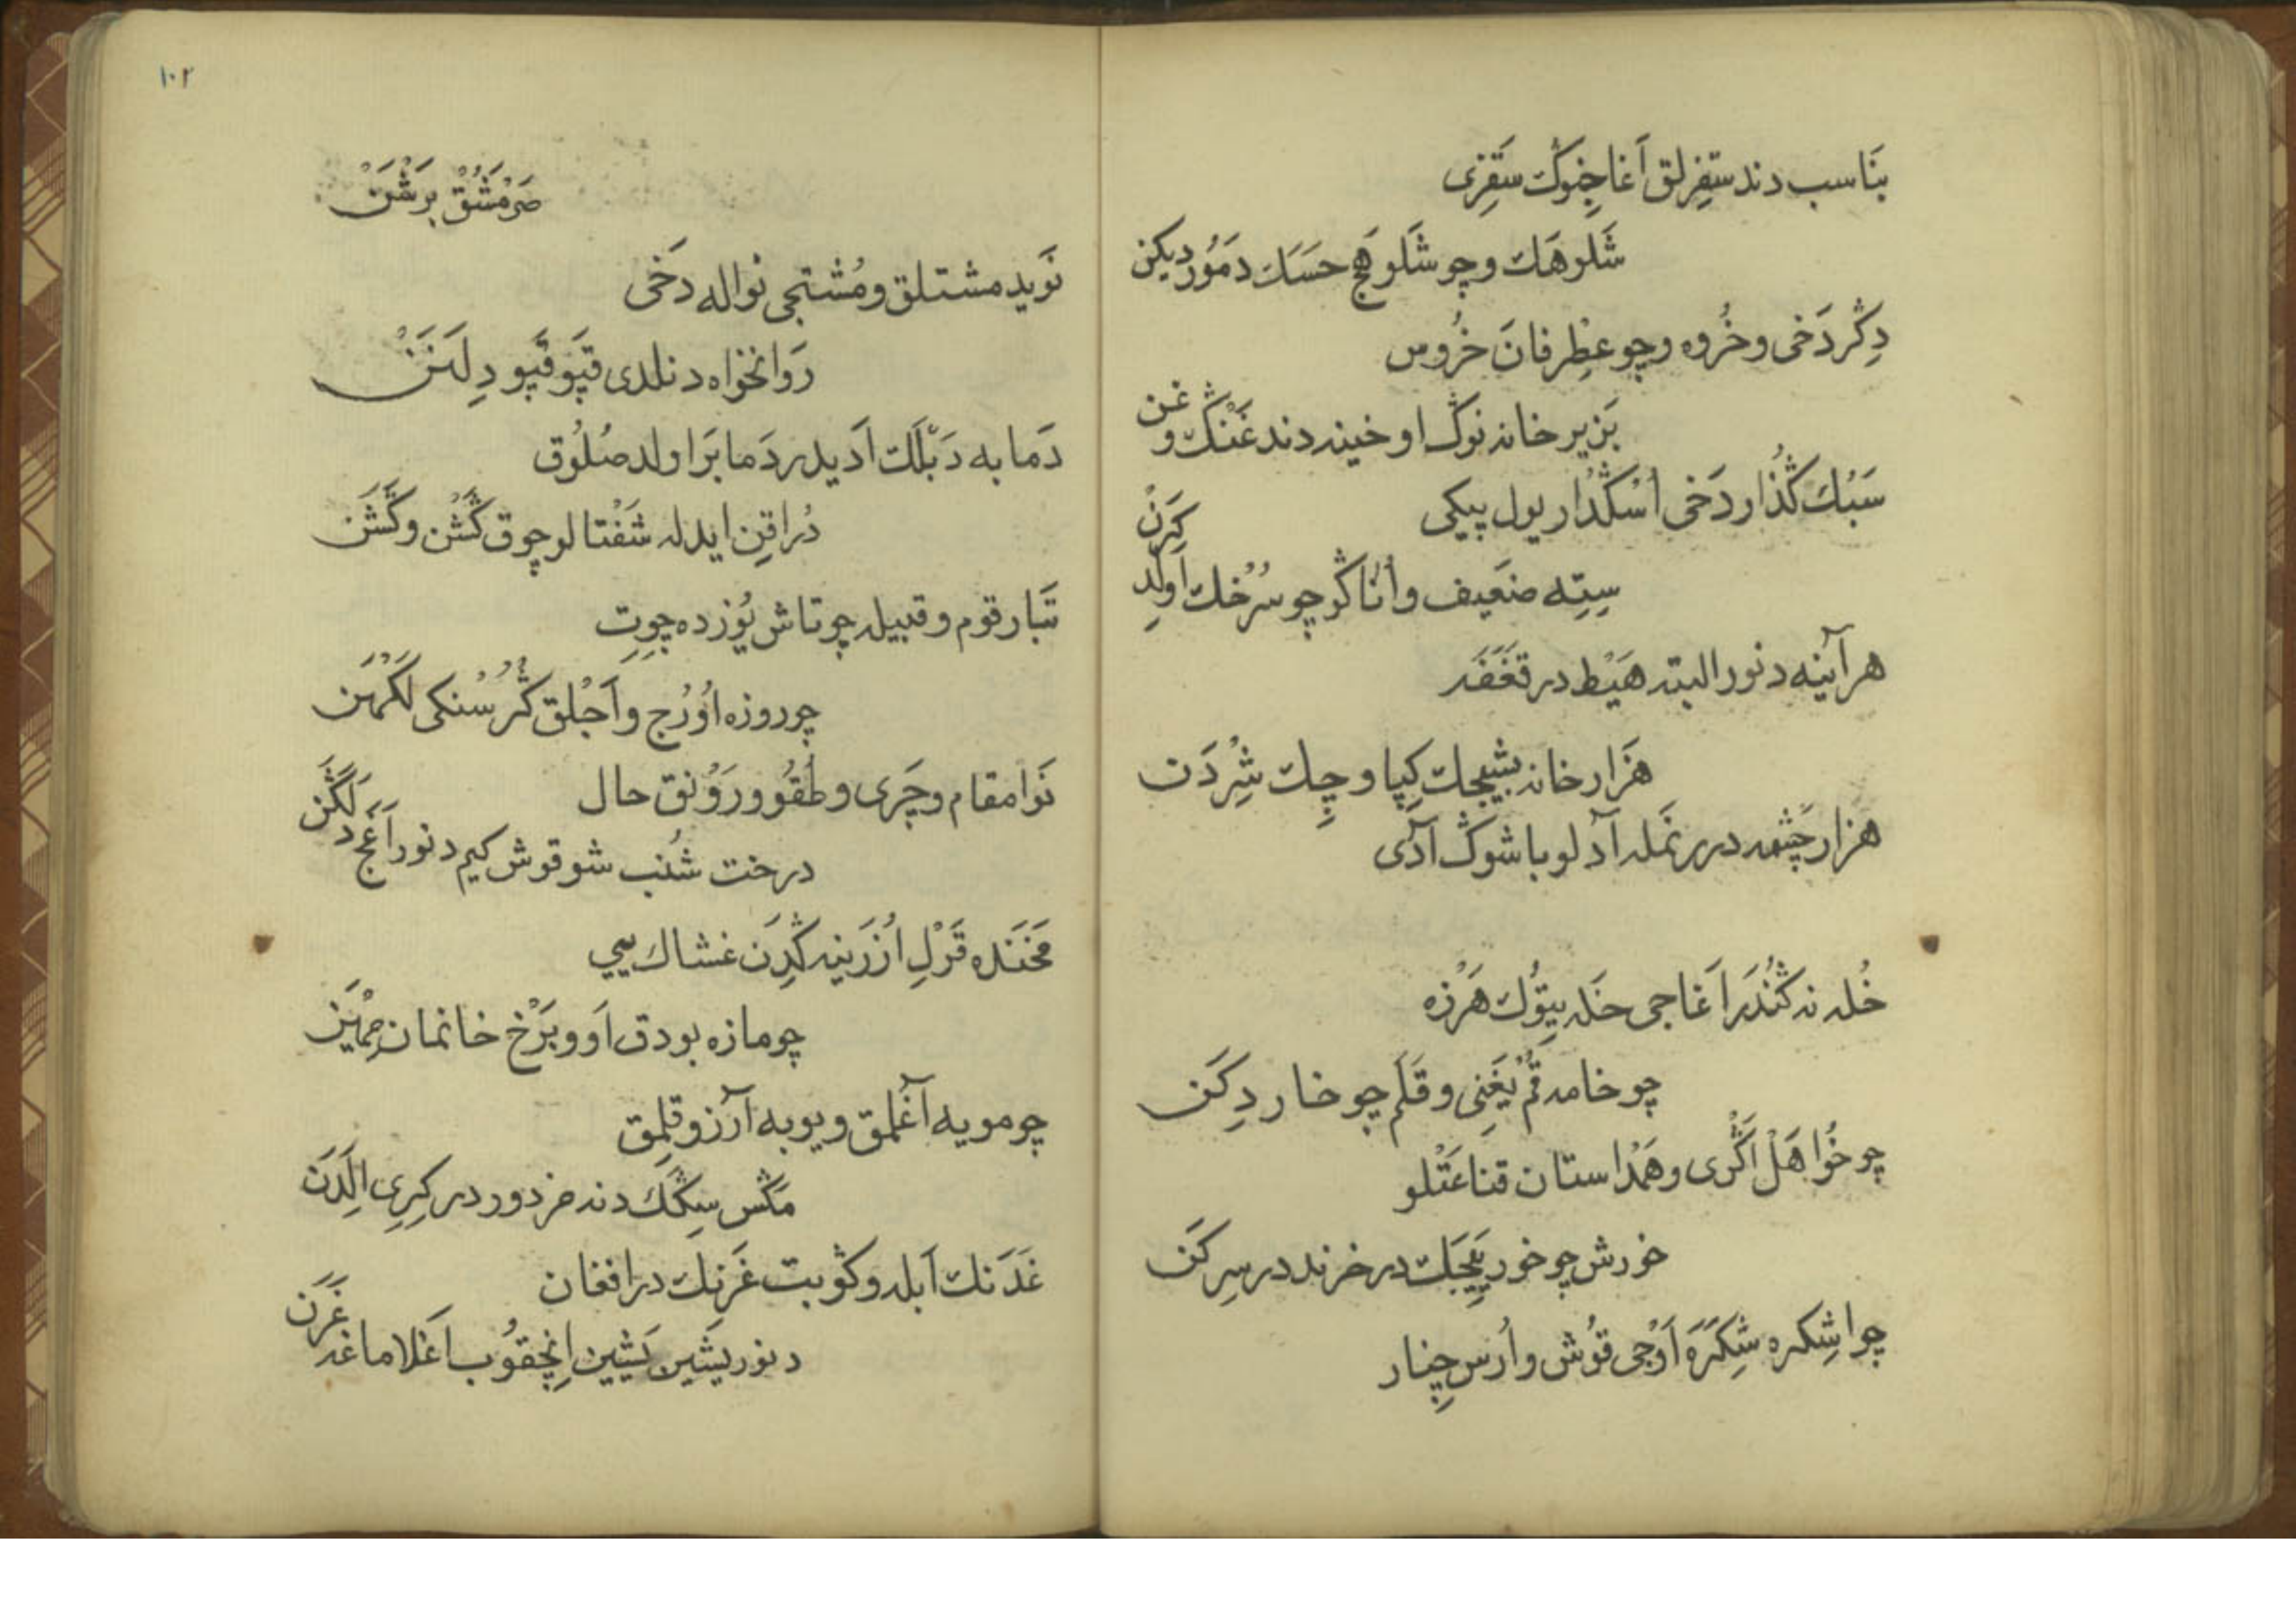 بَناسب دند سَقِزلق اَغاجِنوڭ سَقِزى
شَلرهَك وچو شَلوهَج حَسَك دمَوُر ديكن
دِڭر دَخى و خُروه وچو عطِرفانَ خُروس
بَزير خانه نوڭ اوخينه دند غَنْڭ و غن
سَبُك كُذار دَخى اُسْكُدار يول پيكى
سِتِه ضعَيف و اُناڭو چو سُرْخك اَولَدِ كرَنْ
هر آينه دنور البته هَيْط در قَغَفَه
هَزار خانه بشيجك كِپا و چِك شِرْدَن
هزار چَشْمه درر نمَله آد لو باشوڭ آدى
خُله نه كُنْدَرَ اَغاجى خَله بِيَوُك هَرْزه
چو خامه قُم يَغِنى و قلَم چو خار دِكَن
چو خُوا هَلْ اَڭْرى و هَمْداستان قناعَتْلو
خورش چو خور يَيِجَك در خزند در سِركَن
چو اشِكره شِكَرَه آوْجى قوُش و اُرسِ چِنار
١٠٢
صَرمَشُقْ بِرَشَنْ
نَويد مشتلق و مُشتجى نواله دَخى
رَوانخواه دنلدى قَپَو قَپو دِلَنَنْ
دَما به دَبَلَك اَديدر دَما بَرَا ولد صُلوُق
دُراقِن ايدله شَفْتالو چوق كُشْن و كَشَن
تَبار قوم و قبيله چو تاش يوُزده چِوِت
چو روزه اوُرُج و اَجْلِق كُرُسْنكى لكَهَن
نَوا مقام و چَرى و طُقوُ و رَوْنق حال
درخت شُنب شو قوش كيم دنور اَغَج دَلَكَن
مَخَنَده قَزْلِ اُزَرَينه كْدِرَن غشاك ييى
چو مازه بودق اَو و بَرْخ خانمان مِهْيَن
چو مويه آغلمق و يوبه آرزو قِلمِق
مَكَس سِكَك دند مزدور در كِرِى اَلِدَن
غدَنك اَبله و كوبت غَزِنك در افغان
دنور يشَين يَشَين اِنجِقوُب اَغلاماغه غَرَن